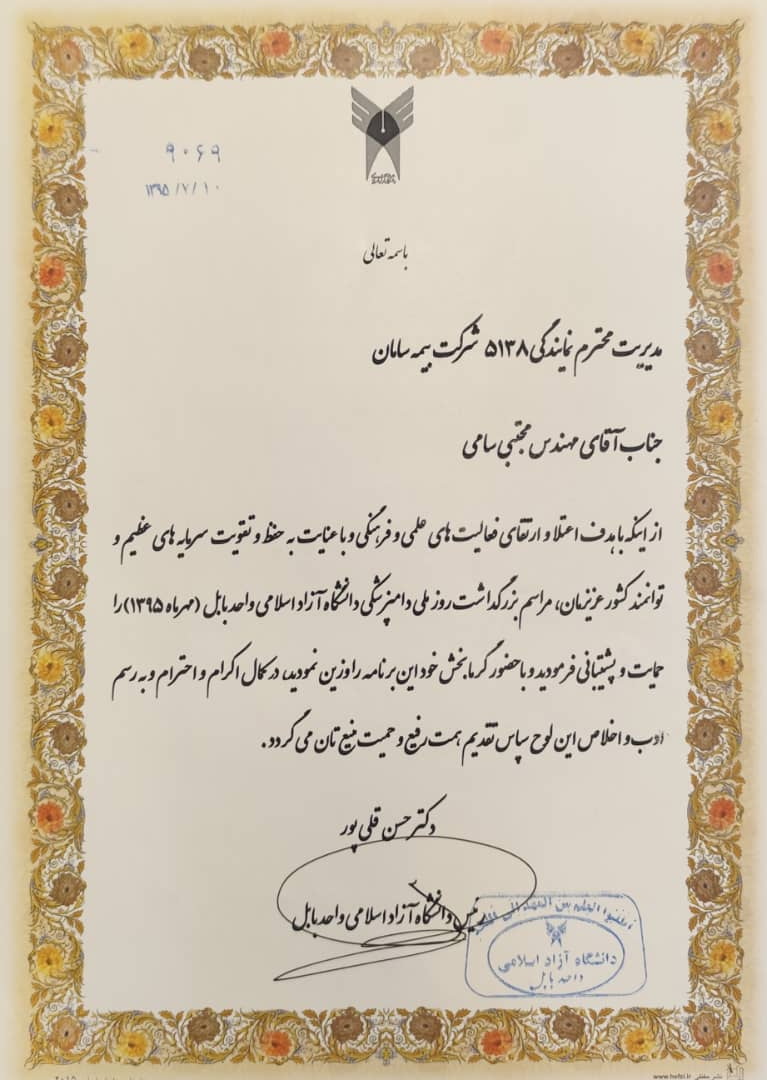 ۹۰۶۹
۱۳۹۵/۷/۱۰
باسمه تعالی
مدیریت محترم نمایندگی ۵۱۳۸ شرکت بیمه سامان
جناب آقای مهندس مجتبی سامی
از اینکه با هدف اعتلا و ارتقای فعالیت های علمی و فرهنگی و با عنایت به حفظ و تقویت سرمایه های عظیم و
توانمند کشور عزیزمان، مراسم بزرگداشت روز ملی دامپزشکی دانشگاه آزاد اسلامی واحد بابل (مهرماه ۱۳۹۵) را
حمایت و پشتیبانی فرمودید و با حضور گرمابخش خود این برنامه را وزین نمودید، در کمال اکرام و احترام و به رسم
ادب و اخلاص این لوح سپاس تقدیم همت رفیع و حمیت منیع تان می گردد.
دکتر حسن قلی پور
رئیس دانشگاه آزاد اسلامی واحد بابل
اطلبوا العلم من المهد الی اللحد
دانشگاه آزاد اسلامی
واحد بابل